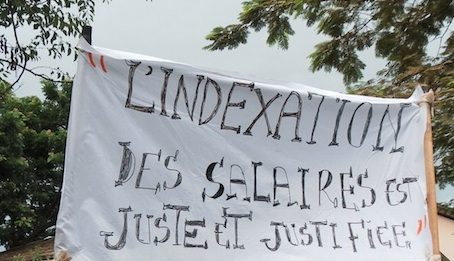 "L'INDEXATION
DES SALAIRES EST
JUSTE ET JUSTIFIEE"